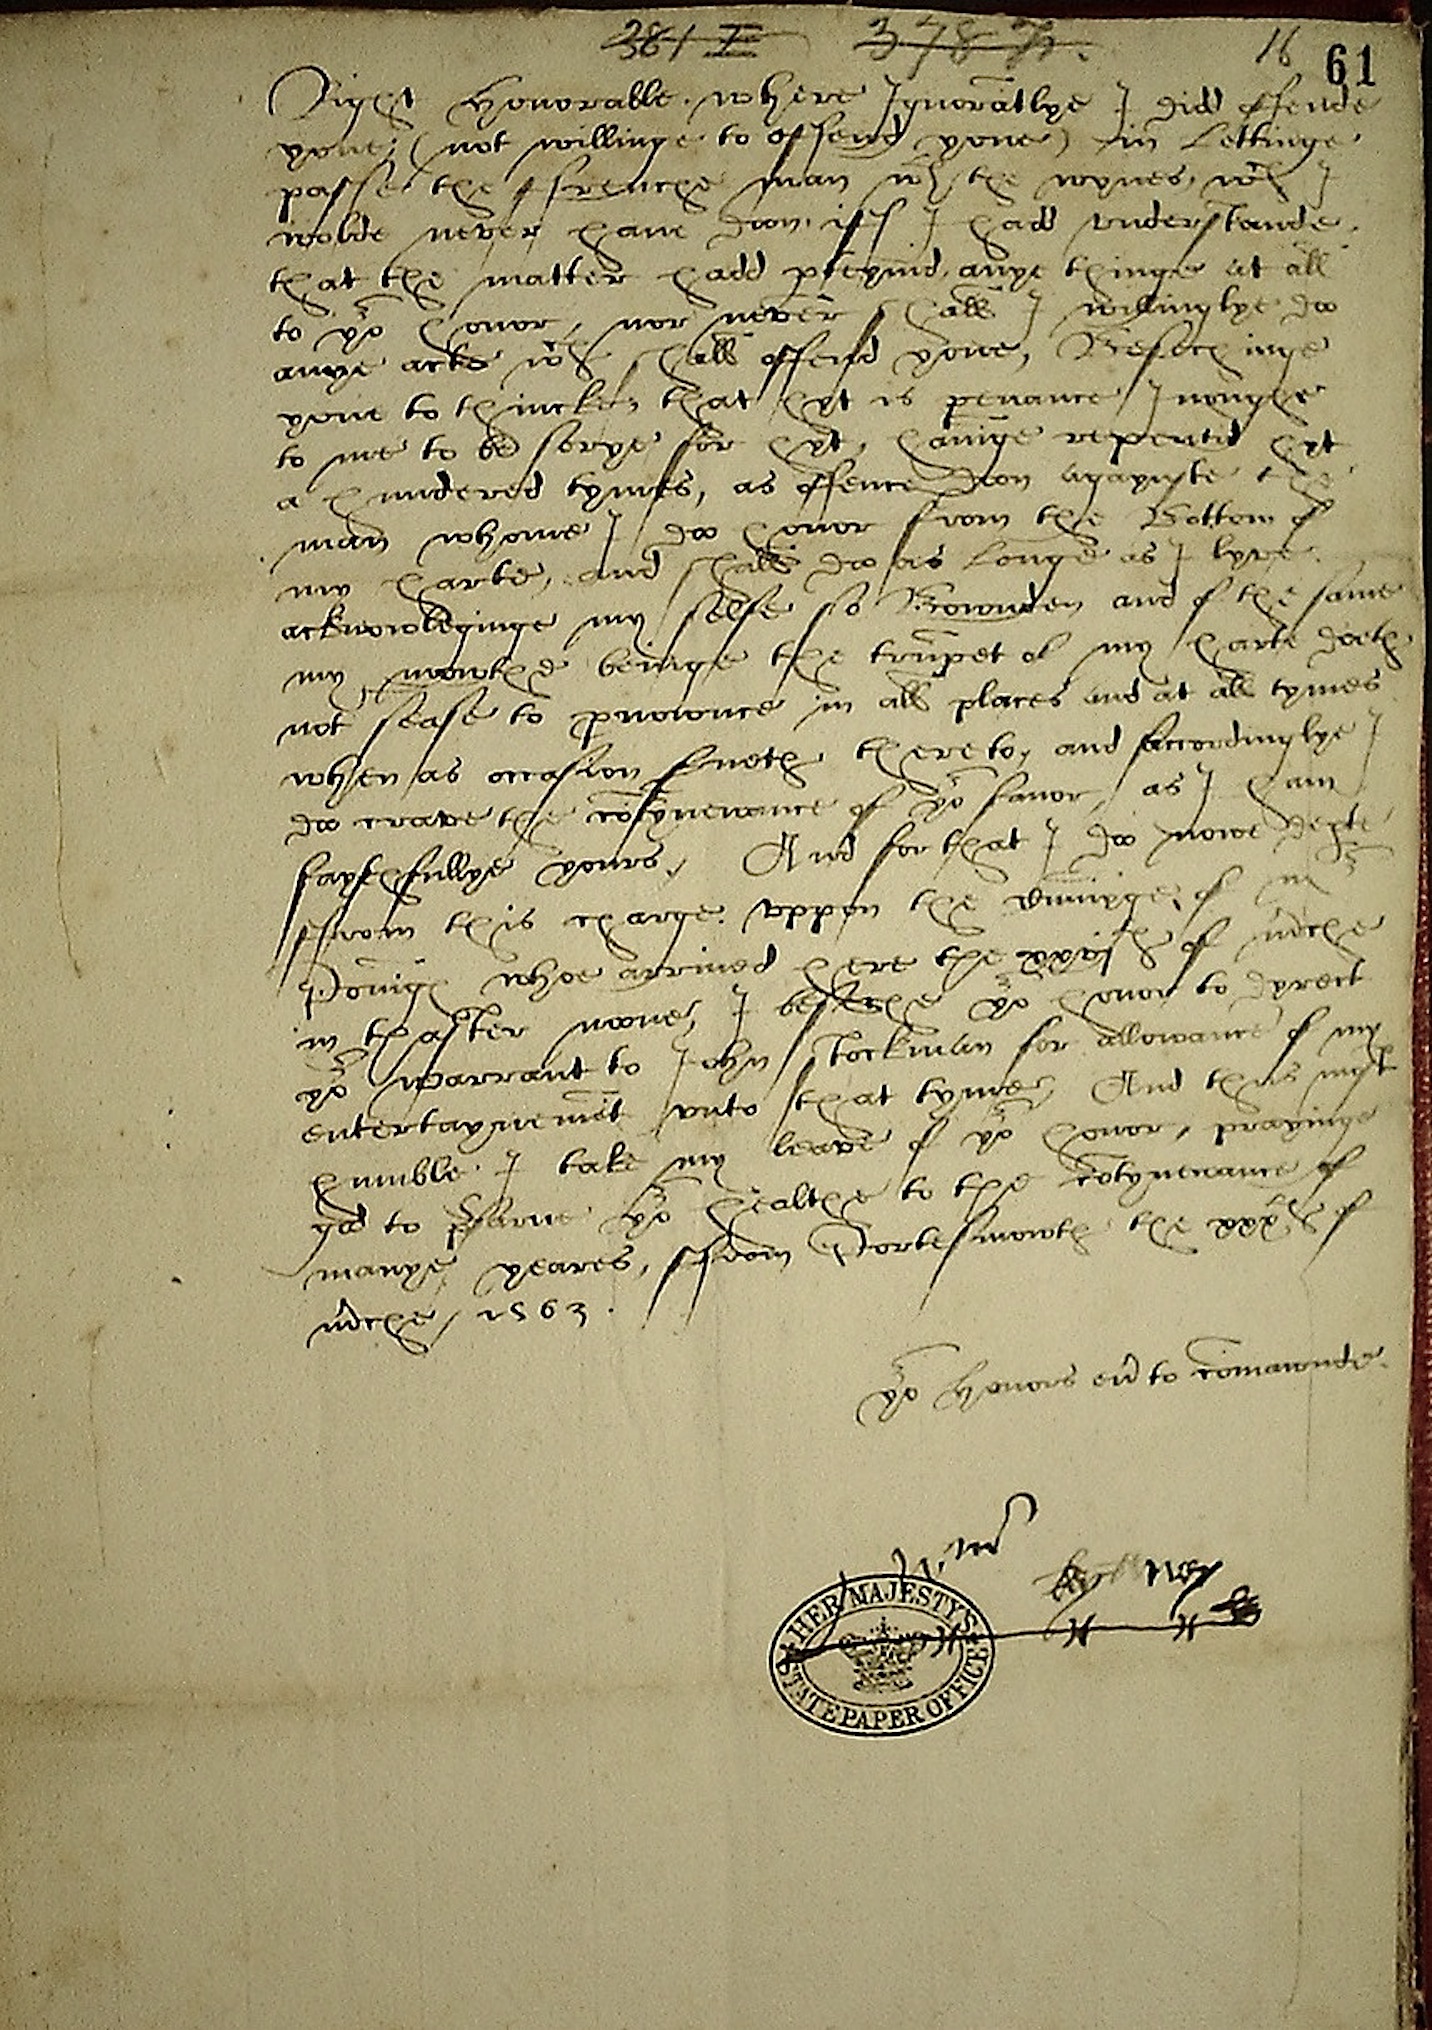 381 I 378 16 61
Right honorable. where Ignorātlye I did offende
youe, (not willinge to offend youe) in Lettinge
passe the ffrenche man wth the wynes, wch I
wolde never have don yff I hadd understande.
that the matter hadd p'teynid anye thinge at all
to yor honor, nor never shall I willinglye doo
anye acte wch shall offend youe, Besechinge
youe to thincke, that hyt is penance Inoughe
to me to be sorye for hyt, havinge repentid hyt
a hundered tymes, as offence don agaynste the
man whome I doo honor from the Bottom of
my harte, and shall doo as Longe as I lyve.
acknowleginge my selfe so Bownden and of the same
my mowthe beinge the trūpet of my harte doeth
not sease to pnownce in all places and at all tymes
when as occasion sueth thereto, and accordinglye I
doo crave the cōtynewance of yor favor, as I ham
faythfullye yours, And for that I doo nowe depte
ffrom this charge. uppon the cūmynge of mr
Pōnigh whoe arrived here the xxvjth of mrche
in thafter none, I beseche yor honor to dyrect
yor warrant to John Stockman for allowance of my
entertaynemēt unto that tyme, And thus most
humble I take my leave of yor honor, prayinge
god to pserve yor healthe to the cōtynewance of
manye yeares, ffrom Portesmowth the xxxth of
mrche, 1563.
yor Honors ev' to cōmawnde.
HER MAJESTY'S
STATE PAPER OFFICE